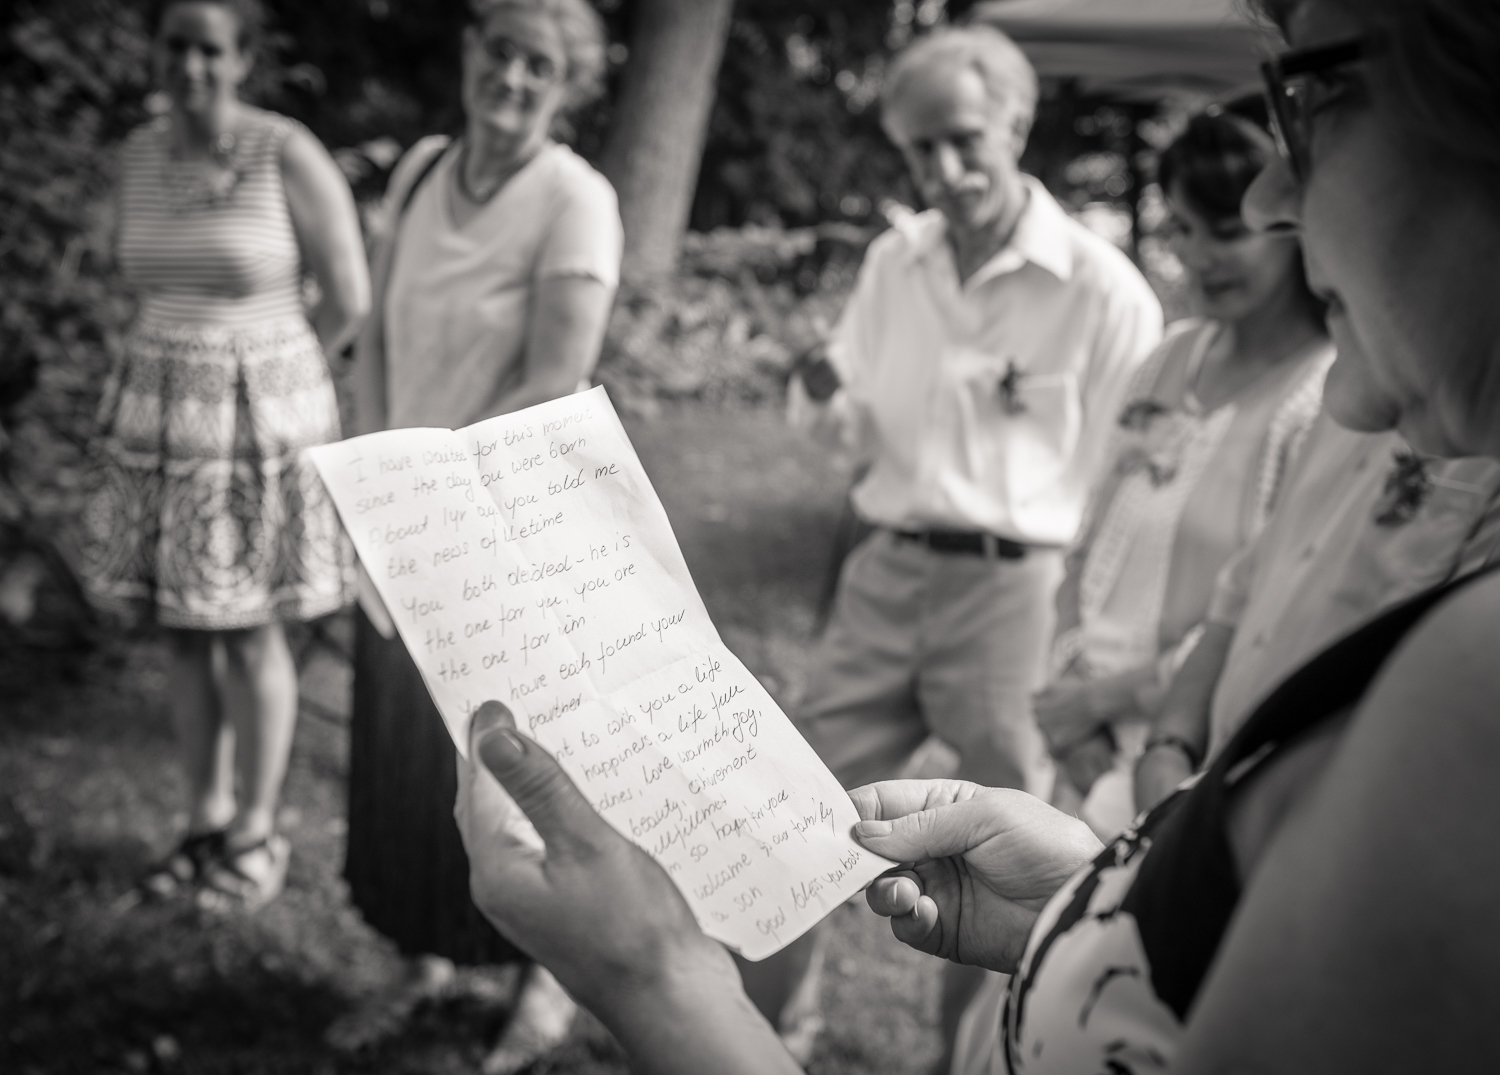 I have waited for this moment
since the day you were born
About 1yr ag. you told me
the news of lifetime
You both decided - he is
the one for you, you are
the one for him.
You have each found your
partner
to wish you a life
happiness, a life full
love, warmth, joy,
beauty, excitement
fullfillment
so happy for you.
welcome to our family
a son
God bless you both